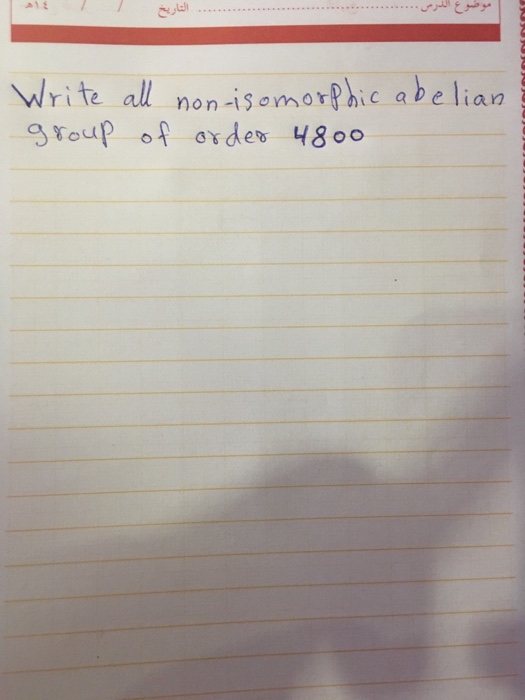 موضوع الدرس ........................ التاريخ / / ١٤هـ
Write all non-isomorphic abelian
group of order 4800